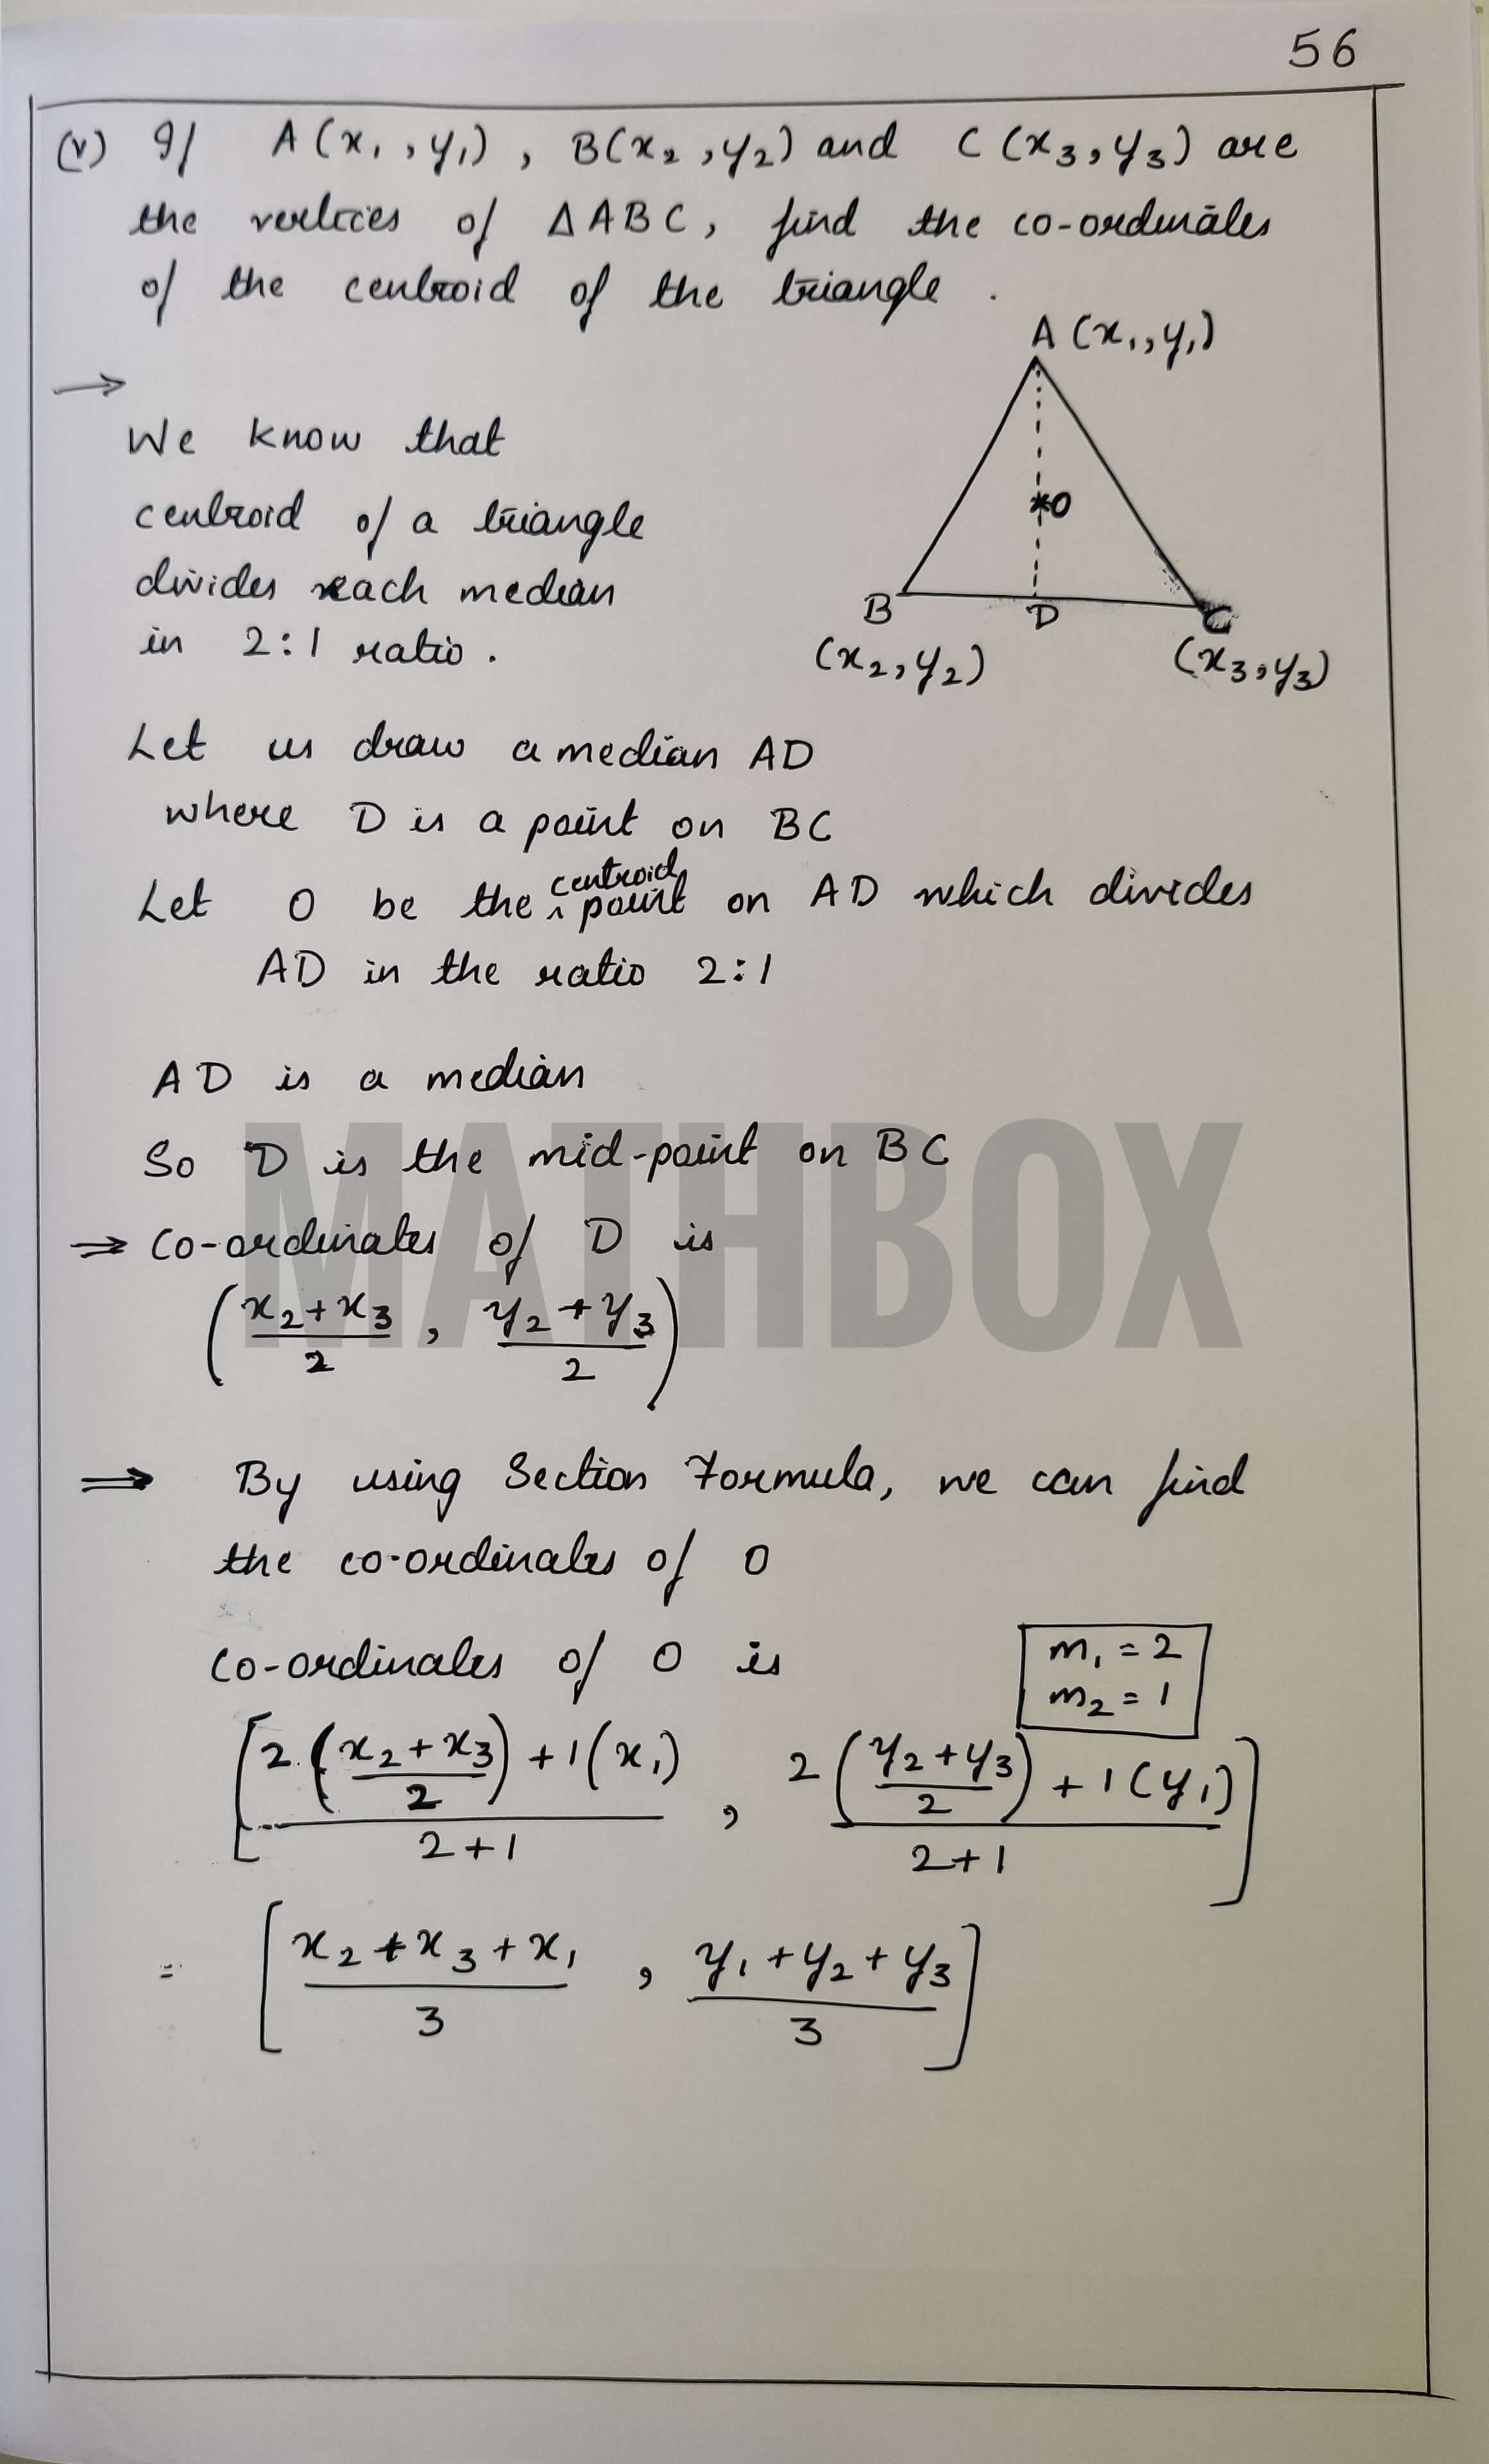 56
(v) If A(x₁, y₁), B(x₂, y₂) and C(x₃, y₃) are
the vertices of △ABC, find the co-ordinates
of the centroid of the triangle.
A(x₁, y₁)
→
We know that
centroid of a triangle
divides each median
in 2:1 ratio.
O
B D C
(x₂, y₂) (x₃, y₃)
Let us draw a median AD
where D is a point on BC
Let O be the centroid point on AD which divides
AD in the ratio 2:1
AD is a median
So D is the mid-point on BC
MATHBOX
⇒ Co-ordinates of D is
((x₂+x₃)/2, (y₂+y₃)/2)
⇒ By using Section Formula, we can find
the co-ordinates of O
Co-ordinates of O is
m₁ = 2
m₂ = 1
[(2((x₂+x₃)/2)+1(x₁))/(2+1), (2((y₂+y₃)/2)+1(y₁))/(2+1)]
= [(x₂+x₃+x₁)/3, (y₁+y₂+y₃)/3]